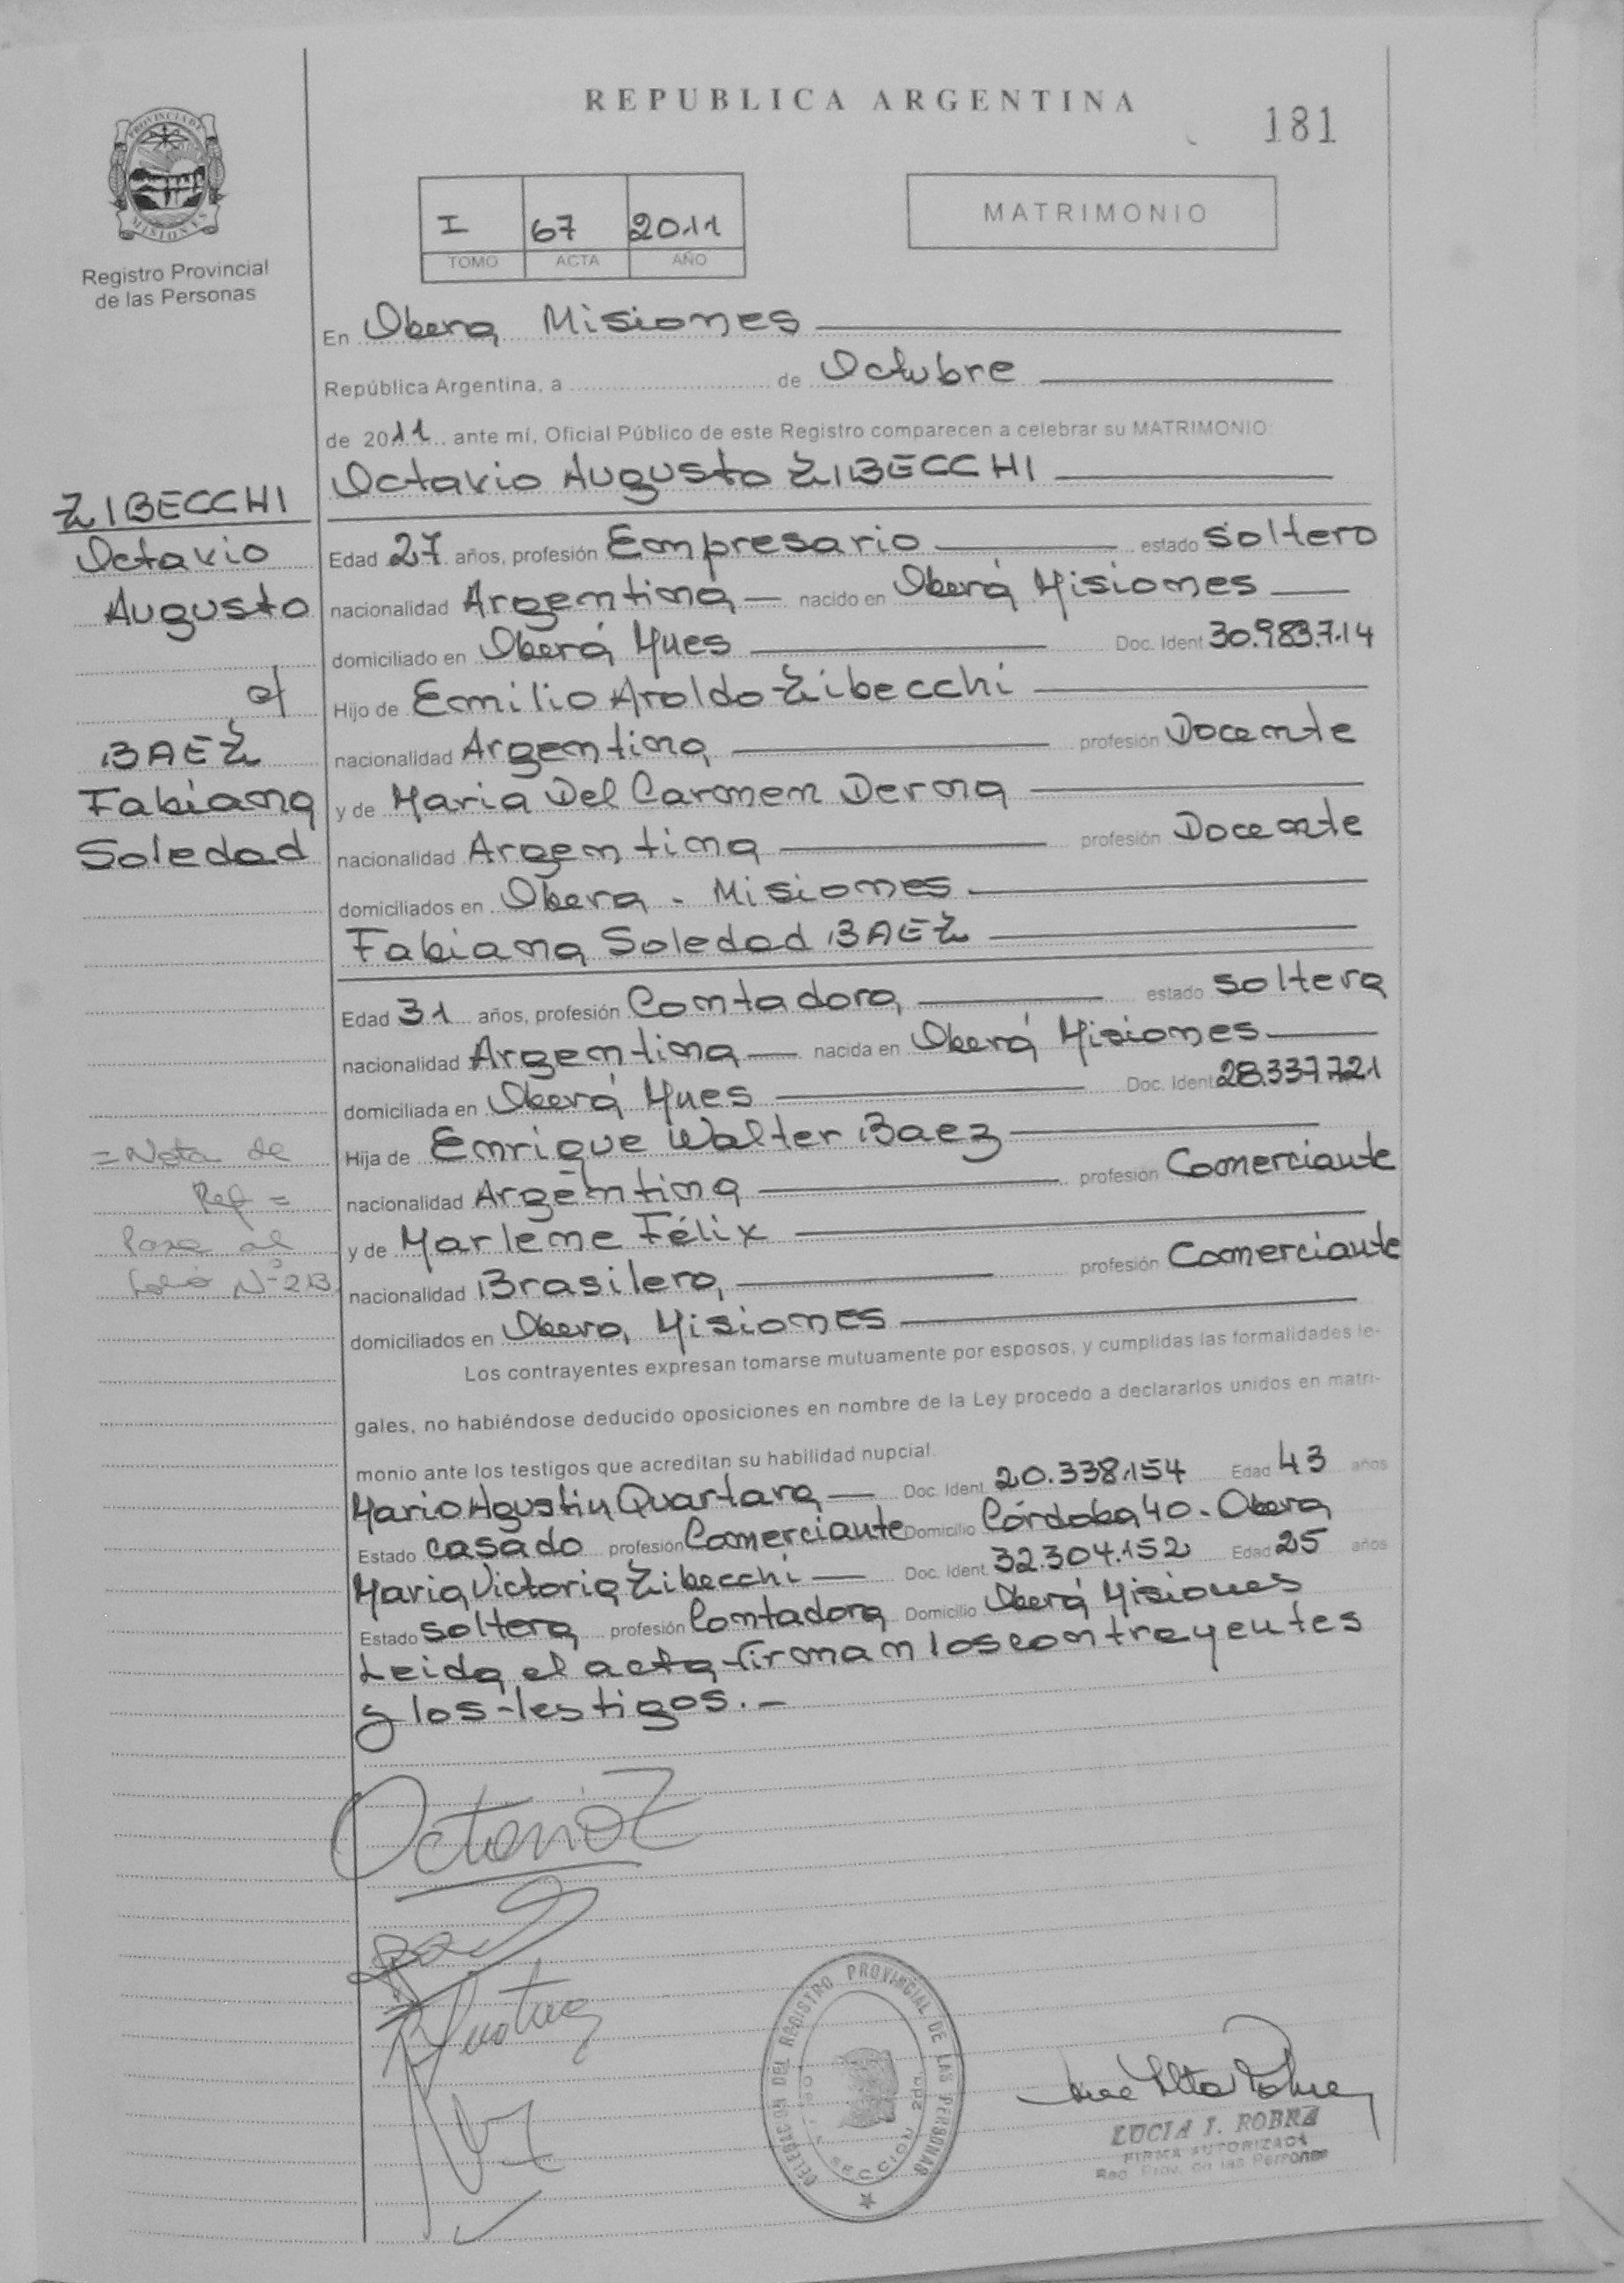 REPUBLICA ARGENTINA
181
PROVINCIA DE
MISIONES
Registro Provincial
de las Personas
I 67 2011
TOMO ACTA AÑO
MATRIMONIO
En Obera, Misiones
República Argentina, a de Octubre
de 2011 ante mí, Oficial Público de este Registro comparecen a celebrar su MATRIMONIO:
Octavio Augusto ZIBECCHI
Edad 27 años, profesión Empresario estado soltero
nacionalidad Argentina nacido en Oberá Misiones
domiciliado en Oberá Mnes Doc. Ident 30.983.714
Hijo de Emilio Aroldo Zibecchi
nacionalidad Argentina profesión Docente
y de Maria Del Carmen Derna
nacionalidad Argentina profesión Docente
domiciliados en Obera - Misiones
Fabiana Soledad BAEZ
Edad 31 años, profesión Contadora estado soltera
nacionalidad Argentina nacida en Oberá Misiones
domiciliada en Oberá Mnes Doc. Ident 28.337.721
Hija de Enrique Walter Baez
nacionalidad Argentina profesión Comerciante
y de Marlene Félix
nacionalidad Brasilera profesión Comerciante
domiciliados en Obera, Misiones
Los contrayentes expresan tomarse mutuamente por esposos, y cumplidas las formalidades le-
gales, no habiéndose deducido oposiciones en nombre de la Ley procedo a declararlos unidos en matri-
monio ante los testigos que acreditan su habilidad nupcial.
Mario Agustin Quartara Doc. Ident. 20.338.154 Edad 43 años
Estado casado profesión Comerciante Domicilio Córdoba 40 - Obera
Maria Victoria Zibecchi Doc. Ident. 32.304.152 Edad 25 años
Estado soltera profesión Contadora Domicilio Oberá Misiones
Leida el acta firman los contrayentes
y los testigos.-
ZIBECCHI
Octavio
Augusto
c/
BAEZ
Fabiana
Soledad
= Nota de
Ref =
Pasa al
Folio Nº 213
Octavio Z
DELEGACION DEL REGISTRO PROVINCIAL DE LAS PERSONAS
SECCION 2da.
LUCIA I. ROBRA
FIRMA AUTORIZADA
Reg. Prov. de las Personas